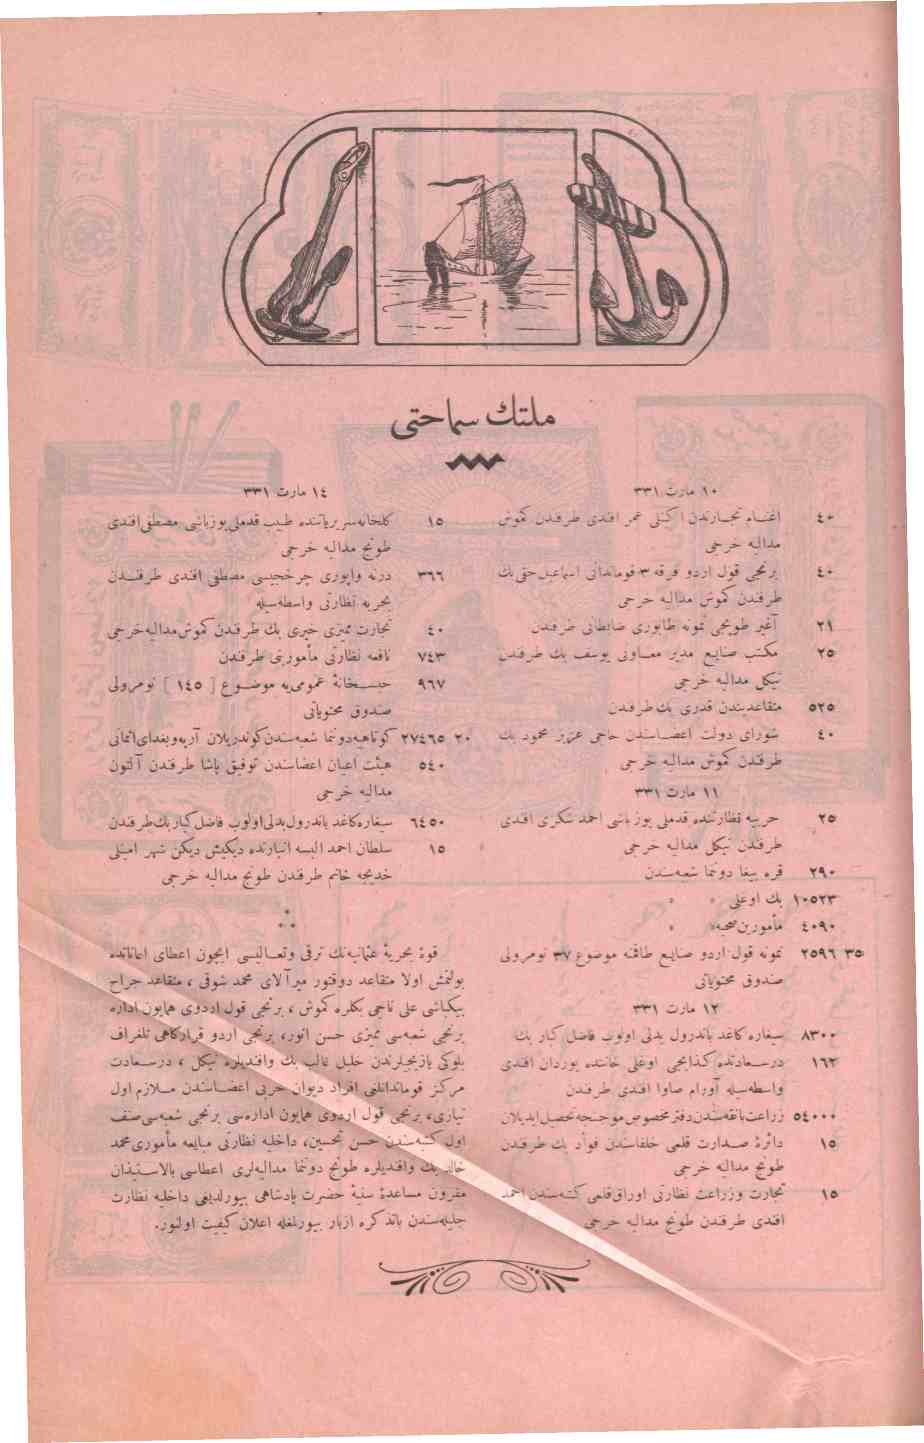 ملتك سماحتی
١٠ مارت ٣٣١
٤٠ اغنام تجارندن اكنلی عمر افندی طرفندن كموش
مدالیه خرجی
٤٠ برنجی قول اردو فرقه ٣ قوماندانی اسماعیل حقی بك
طرفندن كموش مدالیه خرجی
٢١ آغیر طوپجی نمونه طابوری ضابطانی طرفندن
٢٥ مكتب صنایع مدیر معاونی یوسف بك طرفندن
نیكل مدالیه خرجی
٥٢٥ متقاعدیندن قدری بك طرفندن
٤٠ شورای دولت اعضاسندن حاجی عزیز محمود بك
طرفندن كموش مدالیه خرجی
١١ مارت ٣٣١
٢٥ حربیه قطارنده قدملی یوزباشی احمد شكری افندی
طرفندن نیكل مدالیه خرجی
٢٩٠ قره بیغا دوننما شعبه‌سندن
١٠٥٢٣ بك اوغلی » »
٤٠٩٠ مأمورین صحیه » »
٣٥ ٢٥٩٦ نمونه قول اردو صنایع طاقمنه موضوع ٣٧ نومرولی
صندوق محتویاتی
١٢ مارت ٣٣١
٨٣٠٠ سیغاره كاغد باندرول بدلی اولوب فاضل كبار بك
١٦٢ درسعادتده كذابجی اوغلی خاننده یوردان افندی
واسطه‌سیله آورام صاوا افندی طرفندن
٥٤٠٠٠ زراعت بانقه‌سندن دفتر مخصوص موجبنجه تحصیل ایدیلان
١٥ دائرهٔ صدارت قلمی خلفاسندن فؤاد بك طرفندن
طونج مدالیه خرجی
١٥ تجارت وزراعت نظارتی اوراق قلمی كتبه‌سندن احمد
افندی طرفندن طونج مدالیه خرجی
١٤ مارت ٣٣١
١٥ كلخانه سریریاتنده طبیب قدملی یوزباشی مصطفی افندی
طونج مدالیه خرجی
٣٦٦ درنه واپوری چرخجیسی مصطفی افندی طرفندن
بحریه نظارتی واسطه‌سیله
٤٠ تجارت ممیزی خیری بك طرفندن كموش مدالیه خرجی
٧٤٣ نافعه نظارتی مأمورینی طرفندن
٩٦٧ حبسخانهٔ عمومی‌یه موضوع [ ١٤٥ ] نومرولی
صندوق محتویاتی
٢٠ ٢٧٤٦٥ كوتاهیه دوننما شعبه‌سندن كوندریلان آرپه وبغدای اثمانی
٥٤٠ هیئت اعیان اعضاسندن توفیق پاشا طرفندن آلتون
مدالیه خرجی
٦٤٥٠ سیغاره كاغد باندرول بدلی اولوب فاضل كبار بك طرفندن
١٥ سلطان احمد البسه انبارنده دیكیش دیكن شهر امینلی
خدیجه خانم طرفندن طونج مدالیه خرجی
قوهٔ بحریهٔ عثمانیه‌نك ترقی وتعالیسی ایچون اعطای اعاناتده
بولنمش اولا متقاعد دوقتور میرآلای محمد شوقی ، متقاعد جراح
بیكباشی علی ناجی بكلره كموش ، برنجی قول اردوی همایون اداره
برنجی شعبه‌سی ممیزی حسن انور، برنجی اردو قرارگاهی تلغراف
بلوكی یازیجیلرندن خلیل غالب بك وافندیلره نیكل ، درسعادت
مركز قوماندانلغی افراد دیوان حربی اعضاسندن ملازم اول
نیازی، برنجی قول اردوی همایون اداره‌سی برنجی شعبه‌سی صنف
اول كتبه‌سندن حسن تحسین، داخلیه نظارتی مبایعه مأموری محمد
خالد بك وافندیلره طونج دوننما مدالیه‌لری اعطاسی بالاستیذان
مقرون مساعدهٔ سنیهٔ حضرت پادشاهی بیورلدیغی داخلیه نظارت
جلیله‌سندن باتذكره ازبار بیورلمغله اعلان كیفیت اولنور.